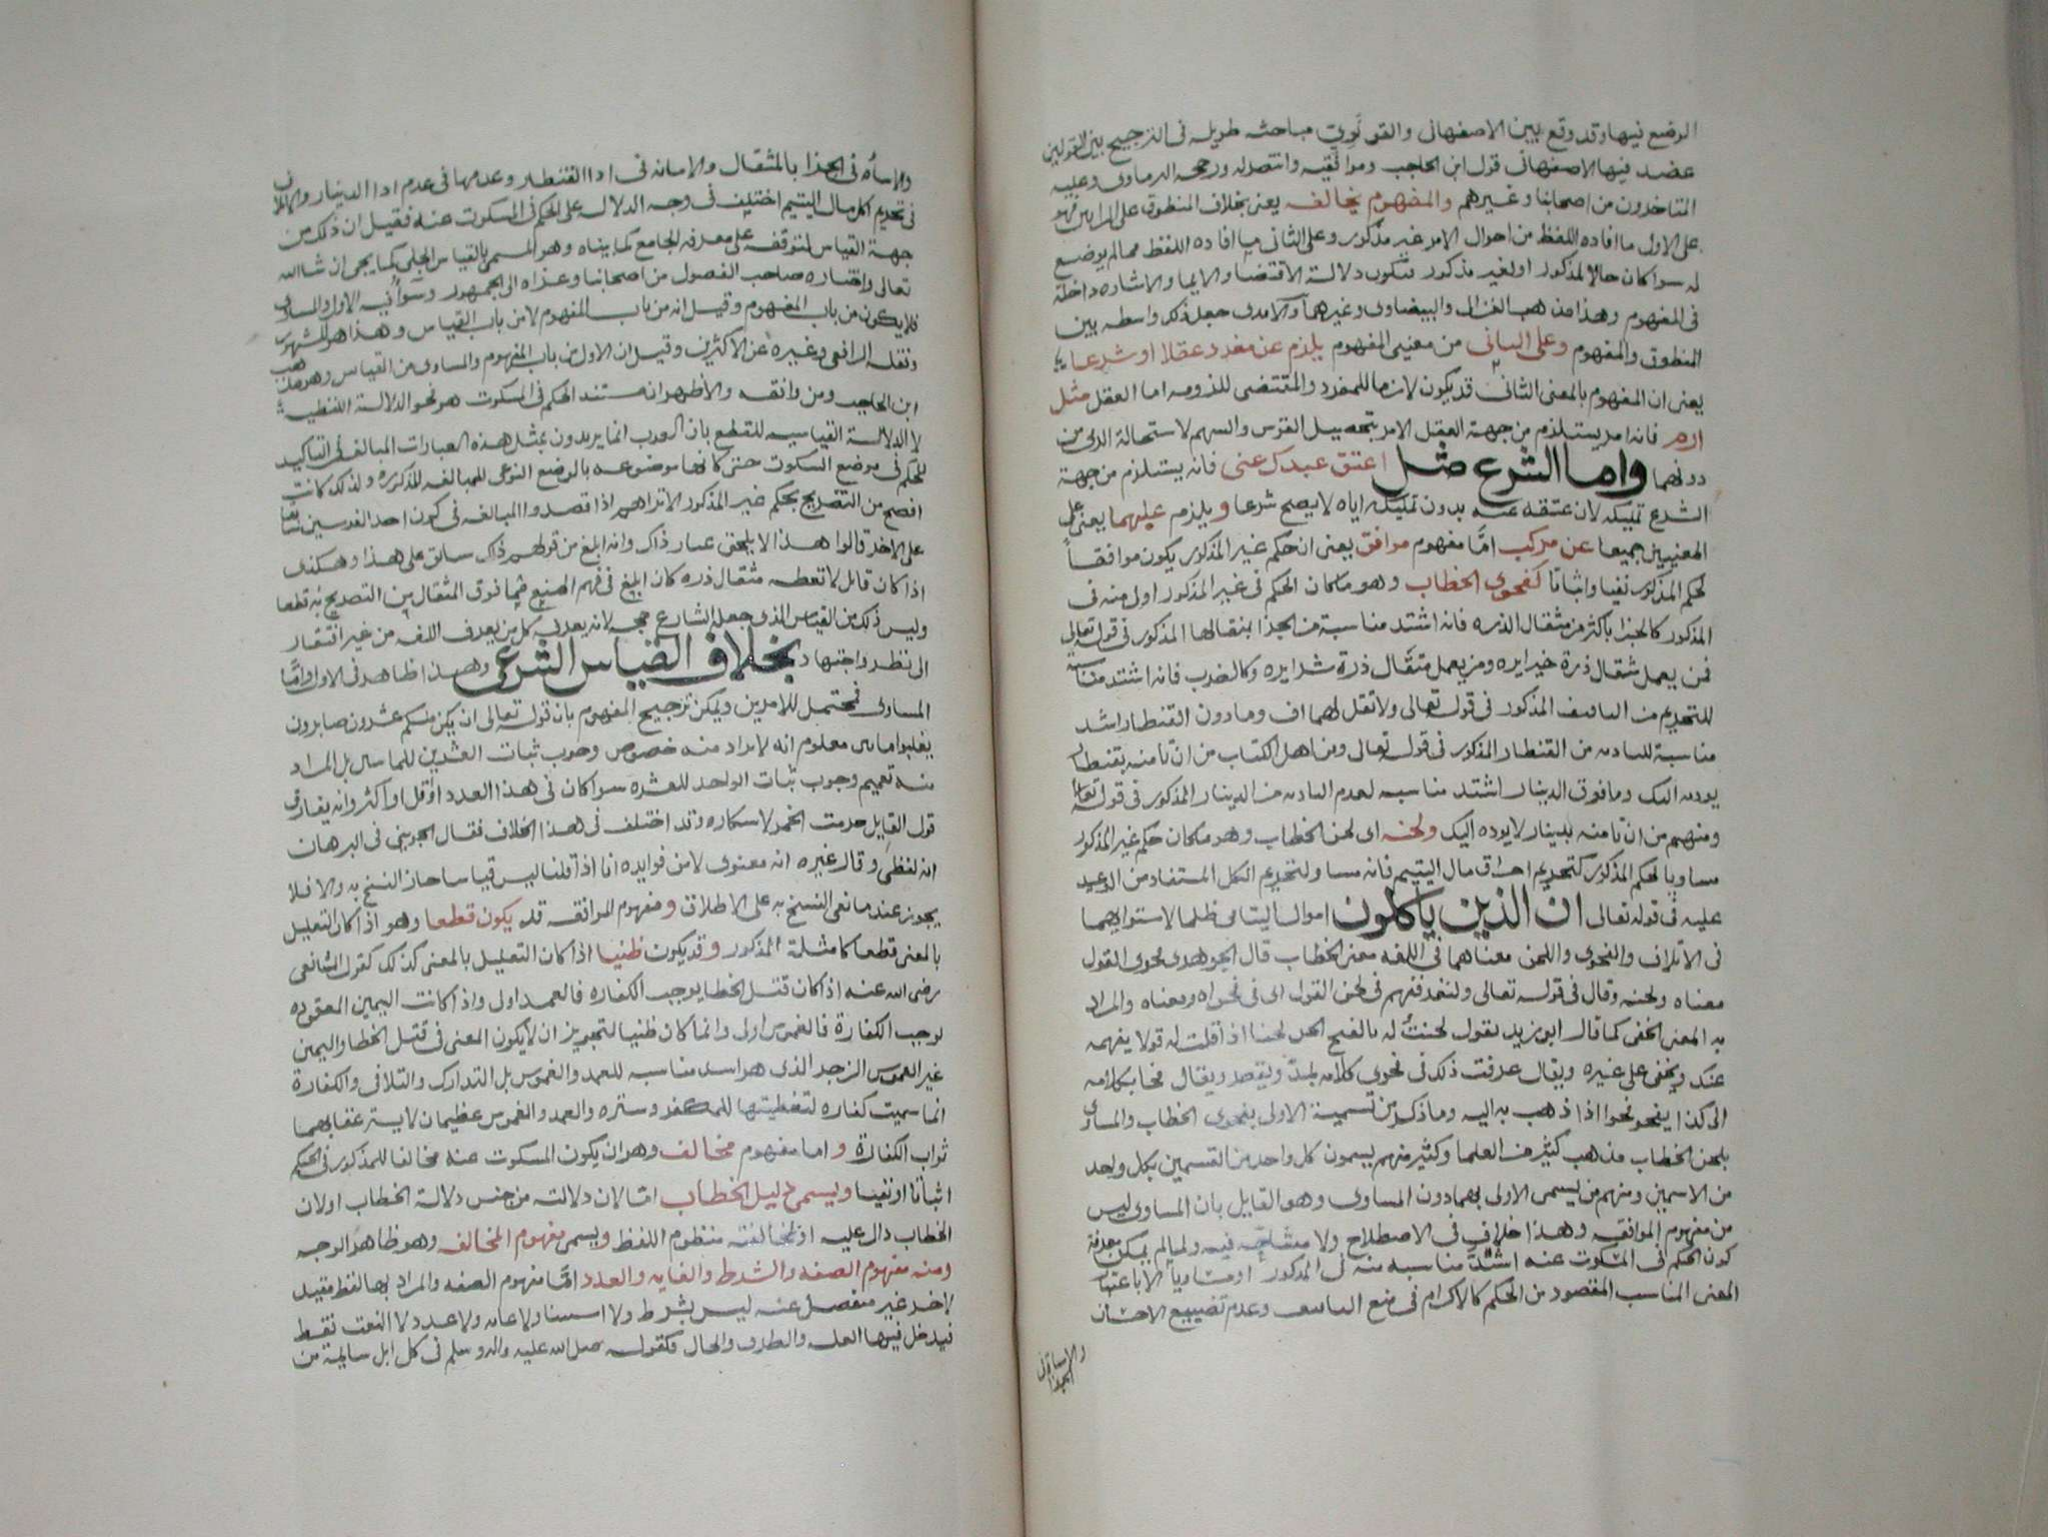 الوضع فيها وقد وقع بين الاصفهانى والقونوى مباحثه طويله فى الترجيح بين القولين
عضد فيها الاصفهانى قول ابن الحاجب وموافقيه وانتصر له ورجحه البرماوى وعليه
المتاخرون من اصحابنا وغيرهم والمفهوم بخالفه يعنى بخلاف المنطوق على الرايين فهو
على الاول ما افاده اللفظ من احوال الامر غير مذكور وعلى الثانى ما افاده اللفظ مما لم يوضع
له سوا كان حالا لمذكور او لغير مذكور فتكون دلالة الاقتضا والايما والاشاره داخلة
فى المفهوم وهذا مذهب الغزالى والبيضاوى وغيرهما والامدى جعل ذلك واسطه بين
المنطوق والمفهوم وعلى الثانى من معنيى المفهوم يلزم عن مفرد عقلا او شرعا
يعنى ان المفهوم بالمعنى الثانى قد يكون لازما للمفرد والمقتضى للزومه اما العقل مثل
ارم فانه امر يستلزم من جهة العقل الامر بتحصيل القوس والسهم لاستحالة الرمى من
دونهما واما الشرع مثل اعتق عبدك عنى فانه يستلزم من جهة
الشرع تمليكه لان عتقه عنه بدون تمليكه اياه لا يصح شرعا ويلزم عليهما يعنى على
المعنيين جميعا عن مركب اما مفهوم موافق يعنى ان حكم غير المذكور يكون موافقا
لحكم المذكور نفيا واثباتا كفحوى الخطاب وهو ما كان الحكم فى غير المذكور اولى منه فى
المذكور كالجزا باكثر من مثقال الذره فانه اشتد مناسبة من الجزا بمثقالها المذكور فى قوله تعالى
فمن يعمل مثقال ذرة خيرا يره ومن يعمل مثقال ذرة شرا يره وكالضرب فانه اشتد مناسبة
للتحريم من التافيف المذكور فى قوله تعالى ولا تقل لهما اف وما دون القنطار اشد
مناسبة للتاديه من القنطار المذكور فى قوله تعالى ومن اهل الكتاب من ان تامنه بقنطار
يوده اليك وما فوق الدينار اشتد مناسبه لعدم التاديه من الدينار المذكور فى قوله تعالى
ومنهم من ان تامنه بدينار لا يوده اليك ولحنه اى لحن الخطاب وهو ما كان حكم غير المذكور
مساويا لحكم المذكور كتحريم احراق مال اليتيم فانه مساو لتحريم الاكل المستفاد من الوعيد
عليه فى قوله تعالى ان الذين ياكلون اموال اليتامى ظلما لاستوايهما
فى الاتلاف والفحوى واللحن معناهما فى اللغه معنى الخطاب قال الجوهرى فحوى القول
معناه ولحنه وقال فى قوله تعالى ولتعرفنهم فى لحن القول اى فى فحواه ومعناه والمراد
به المعنى الخفى كما قال ابو زيد يقول لحنت له بالفتح الحن لحنا اذا قلت له قولا يفهمه
عنك ويخفى على غيره ويقال عرفت ذلك فى فحوى كلامه يمد ويقصر ويقال فحا بكلامه
الى كذا يفحو فحوا اذا ذهب به اليه وما ذكر من تسمية الاولى بفحوى الخطاب والمساوى
بلحن الخطاب مذهب كثير من العلما وكثير منهم يسمون كل واحد من القسمين بكل واحد
من الاسمين ومنهم من يسمى الاولى بهما دون المساوى وهو القايل بان المساوى ليس
من مفهوم الموافقه وهذا خلاف فى الاصطلاح ولا مشاحة فيه ولما لم يمكن معرفة
كون الحكم فى المسكوت عنه اشد مناسبه منه فى المذكور او مساويا الا باعتبار
المعنى المناسب المقصود من الحكم كالاكرام فى منع التافيف وعدم تضييع الاحسان
والاساة فى
الجزا
والاساة فى الجزا بالمثقال والامانه فى ادا القنطار وعدمها فى عدم ادا الدينار والاتلاف
فى تحريم اكل مال اليتيم اختلف فى وجه الدلاله على الحكم فى المسكوت عنه فقيل ان ذلك من
جهة القياس لتوقفه على معرفة الجامع كما بيناه وهو المسمى بالقياس الجلى كما يجى ان شا الله
تعالى واختاره صاحب الفصول من اصحابنا وعزاه الى الجمهور وسوا فيه الاولى والمساوى
فلا يكون من باب المفهوم وقيل انه من باب المفهوم لا من باب القياس وهذا هو المشهور
ونقله الرافعى وغيره عن الاكثرين وقيل ان الاولى من باب المفهوم والمساوى من القياس وهو مذهب
ابن الحاجب ومن وافقه والاظهر انه مستند الحكم فى المسكوت هو نحو الدلالة اللفظية
لا الدلالة القياسيه للقطع بان العرب انما يريدون بمثل هذه العبارات المبالغه فى التاكيد
للحكم فى موضع السكوت حتى كانها موضوعه بالوضع النوعى للمبالغه المذكوره ولذلك كانت
افصح من التصريح بحكم غير المذكور الا تراهم اذا قصدوا المبالغه فى كون احد الفرسين سابقا
على الاخر قالوا هذا لا يلحق غبار ذاك وانه ابلغ من قولهم ذاك سابق على هذا وهكذا
اذا كان قايل لا تعطه مثقال ذره كان ابلغ فى فهم المنع فيما فوق المثقال من التصريح به قطعا
وليس ذلك من القياس الذى جعله الشارع حجه لانه يعرف كل من يعرف اللغه من غير افتقار
الى نظر واجتهاد بخلاف القياس الشرعى وهذا ظاهر فى الاولى واما
المساوى فمحتمل للامرين ويمكن ترجيح المفهوم بان قوله تعالى ان يكن منكم عشرون صابرون
يغلبوا ماتين معلوم انه لا يراد منه خصوص وجوب ثبات العشرين للماتين بل المراد
منه تعميم وجوب ثبات الواحد للعشره سوا كان فى هذا العدد او اقل او اكثر وانه يفارق
قول القايل حرمت الخمر لاسكاره وقد اختلف فى هذا الخلاف فقال الجوينى فى البرهان
انه لفظى وقال غيره انه معنوى لان من فوايده انا اذا قلنا ليس قياسا جاز النسخ به والا فلا
يجوز عند مانعى النسخ به على الاطلاق ومفهوم الموافقه قد يكون قطعا وهو اذا كان التعليل
بالمعنى قطعا كامثلة المذكور وقد يكون ظنيا اذا كان التعليل بالمعنى كذلك كقول الشافعى
رضى الله عنه اذا كان قتل الخطا يوجب الكفاره فالعمد اولى واذا كانت اليمين المعقوده
توجب الكفارة فالغموس اولى وانما كان ظنيا لتجويز ان لا يكون المعنى فى قتل الخطا واليمين
غير الغموس الزجر الذى هو اسد مناسبه للعمد والغموس بل التدارك والتلافى والكفارة
انما سميت كفاره لتغطيتها للمكفر وستره والعمد والغموس عظيمان لا يستر عقابهما
ثواب الكفارة واما مفهوم مخالف وهو ان يكون المسكوت عنه مخالفا للمذكور فى الحكم
اثباتا او نفيا ويسمى دليل الخطاب اما لان دلالته من جنس دلالة الخطاب او لان
الخطاب دال عليه او لمخالفته منظوم اللفظ ويسمى مفهوم المخالفه وهو ظاهر الوجه
ومنه مفهوم الصفه والشرط والغايه والعدد اما مفهوم الصفه والمراد بها لفظ مقيد
لاخر غير منفصل عنه ليس بشرط ولا استثنا ولا غايه ولا عدد لا النعت فقط
فيدخل فيها العله والظرف والحال كقوله صلى الله عليه واله وسلم فى كل ابل سايمة من